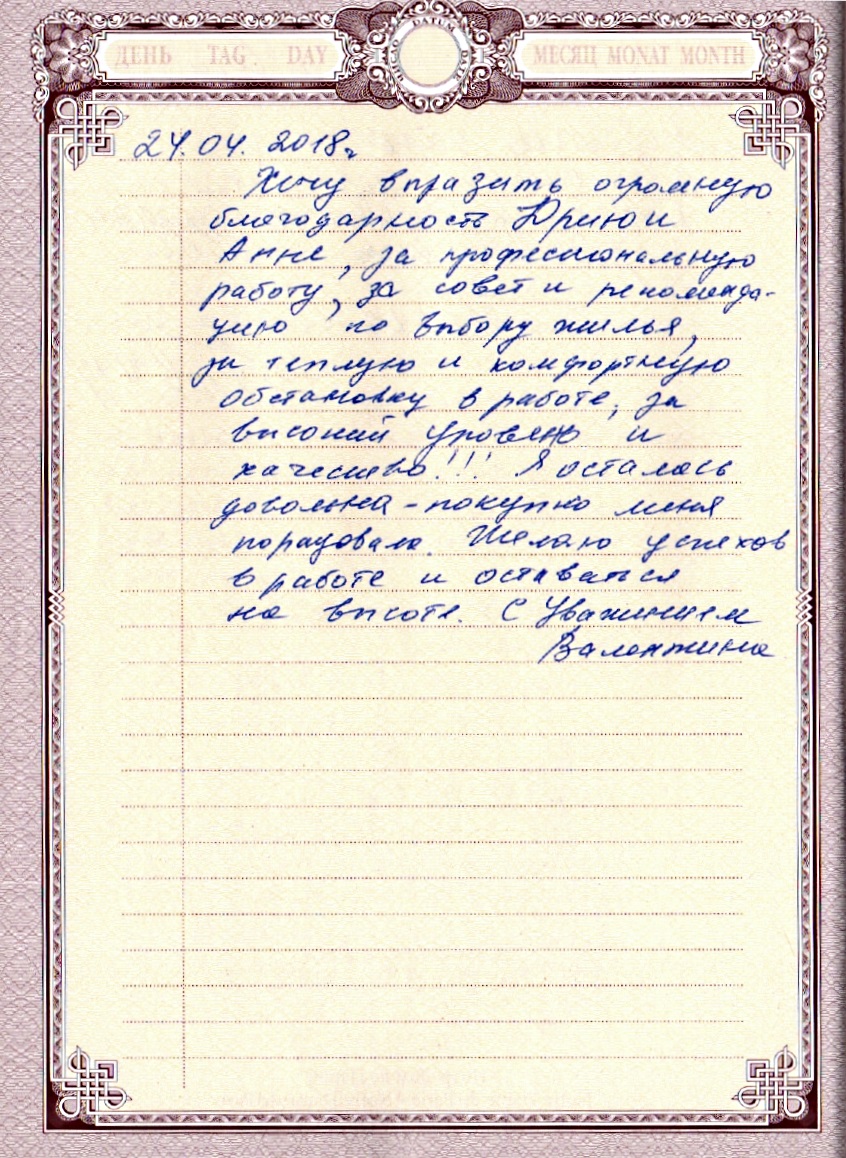 ДЕНЬ TAG DAY DATUM МЕСЯЦ MONAT MONTH
24.04.2018г
Хочу выразить огромную
благодарность Юрию и
Анне, за профессиональную
работу, за совет и рекоменда-
цию по выбору жилья,
за теплую и комфортную
обстановку в работе, за
высокий уровень и
качество!!! Я осталась
довольна - покупка меня
порадовала. Желаю успехов
в работе и оставаться
на высоте. С Уважением
Валентина